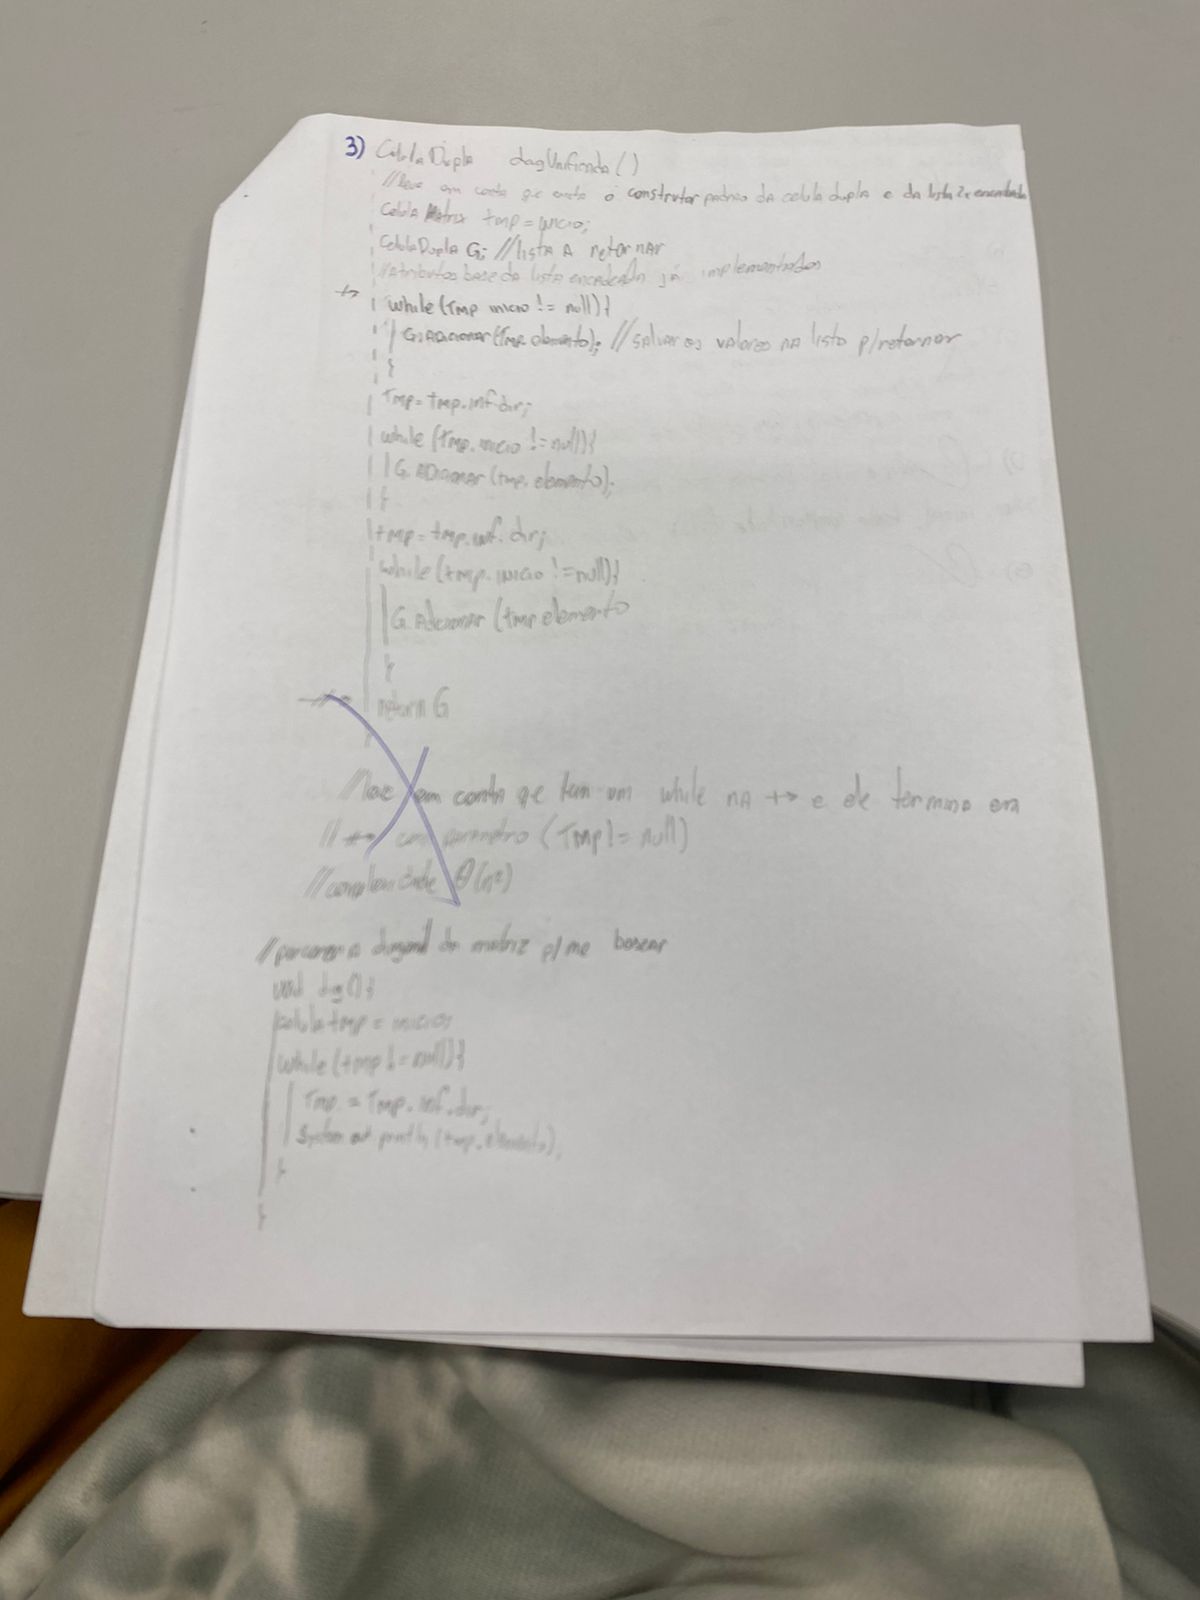 3) CelulaDupla diagUnificada()
//leve em conta que existe o construtor padrao da celula dupla e da lista 2x encadeada
Celula Matrix tmp = inicio;
CelulaDupla G; //lista A retornar
//Atributos base da lista encadeada já implementados
while (Tmp inicio != null){
G.Adicionar(Tmp.elemento); //salvar os valores na lista p/retornar
}
Tmp = tmp.inf.dir;
while (Tmp.inicio != null){
G.ADicionar (tmp.elemento);
}
tmp = tmp.inf.dir;
while (tmp.inicio != null){
G.Adicionar (tmp elemento
}
return G
}
//leve em conta qe tem um while na +> e ele termina em
// com parametro (Tmp != null)
//complexidade Θ(n²)
//percorrer a diagonal da matriz p/me basear
void diag(){
celula tmp = inicio;
while (tmp != null){
Tmp = Tmp.inf.dir;
System out println (tmp.elemento);
}
}